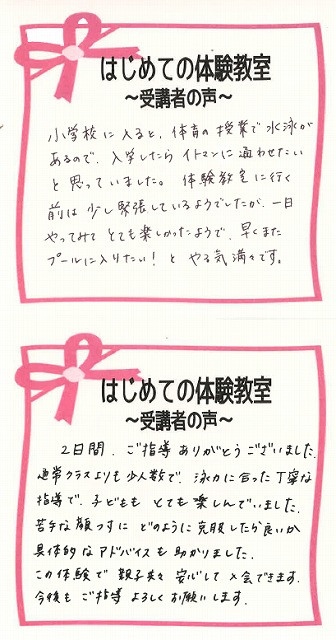 はじめての体験教室
～受講者の声～
小学校に入ると、体育の授業で水泳が
あるので、入学したらイトマンに通わせたい
と思っていました。体験教室に行く
前は少し緊張しているようでしたが、一日
やってみてとても楽しかったようで、早くまた
プールに入りたい！とやる気満々です。
はじめての体験教室
～受講者の声～
2日間、ご指導ありがとうございました。
通常クラスよりも少人数で、泳力に合った丁寧な
指導で、子どももとても楽しんでいました。
苦手な顔つけにどのように克服したら良いか
具体的なアドバイスも助かりました。
この体験で親子共々安心して入会できます。
今後もご指導よろしくお願いします。